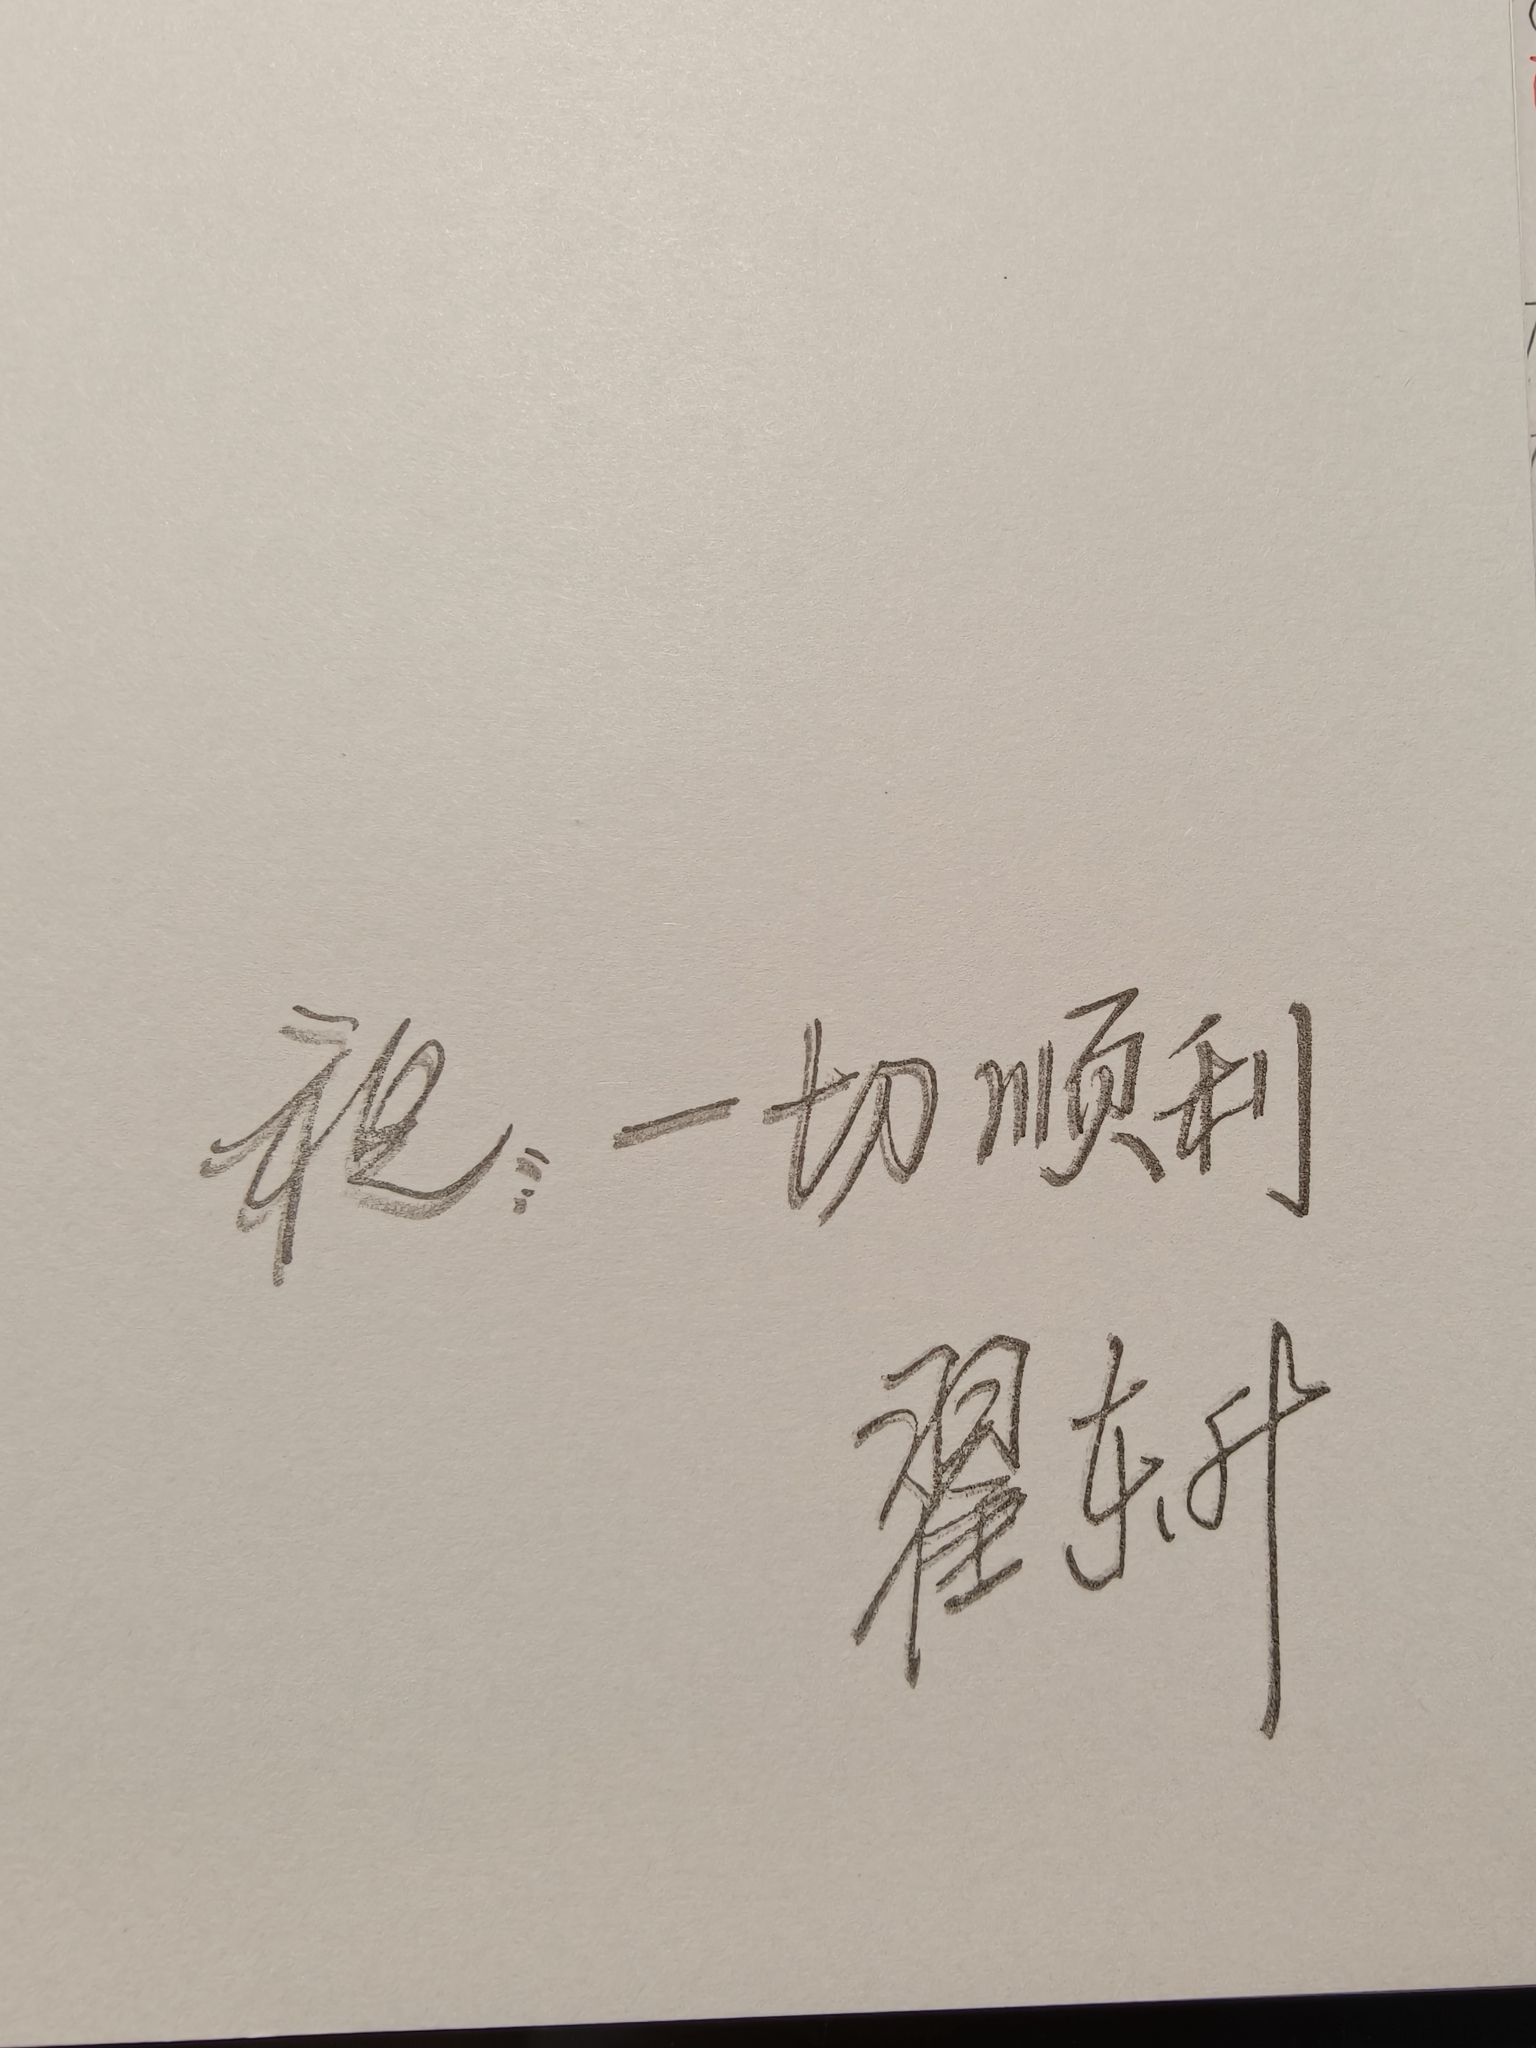 祝：一切顺利
翟东升